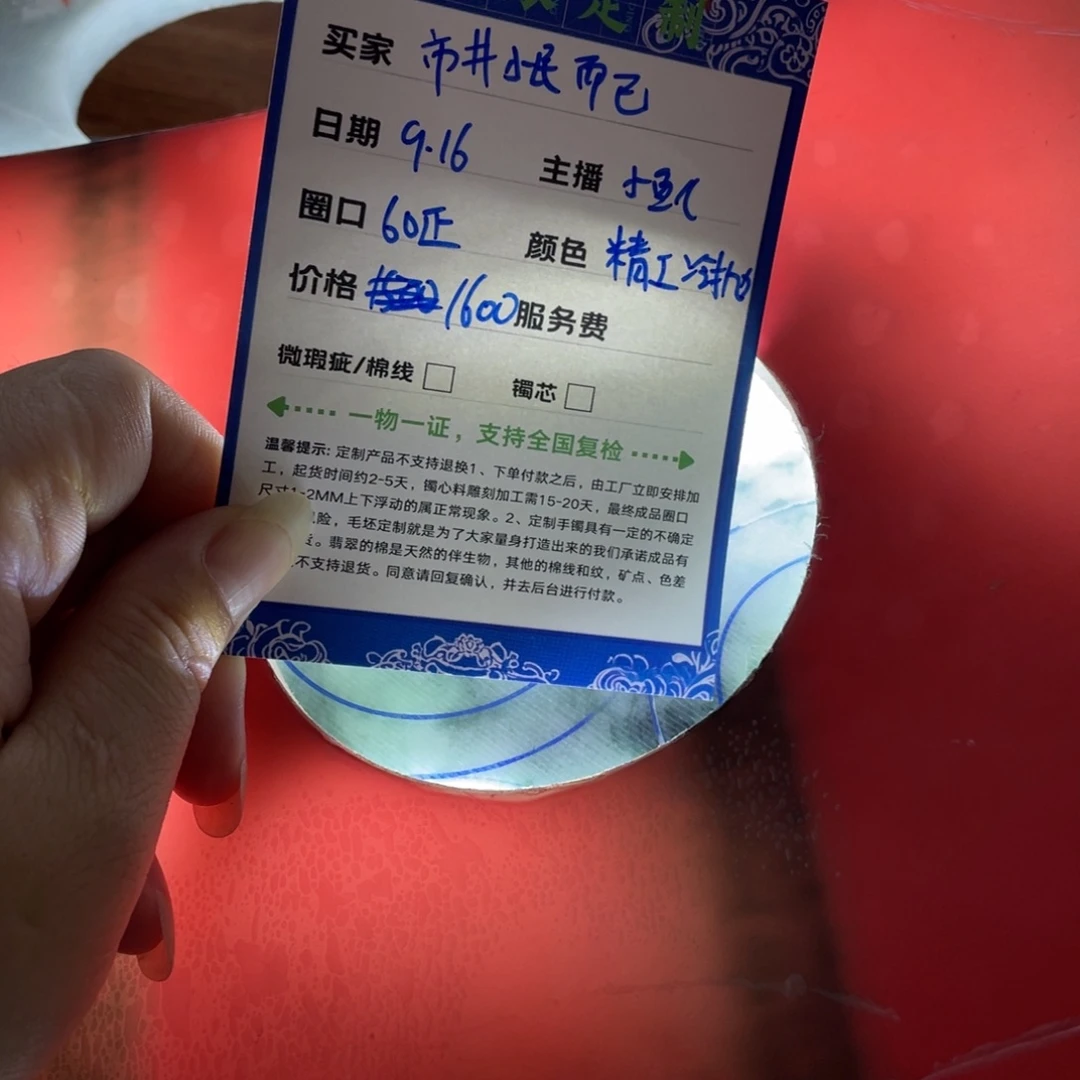 定制
买家 市井小民而已
日期 9.16 主播 小鱼儿
圈口 60正 颜色 精工冷抛
价格 1600 服务费
微瑕疵/棉线 □ 镯芯 □
一物一证，支持全国复检
温馨提示: 定制产品不支持退换1、下单付款之后，由工厂立即安排加
工，起货时间约2-5天，镯心料雕刻加工需15-20天，最终成品圈口
尺寸1-2MM上下浮动的属正常现象。2、定制手镯具有一定的不确定
险，毛坯定制就是为了大家量身打造出来的我们承诺成品有
。翡翠的棉是天然的伴生物，其他的棉线和纹，矿点、色差
不支持退货。同意请回复确认，并去后台进行付款。